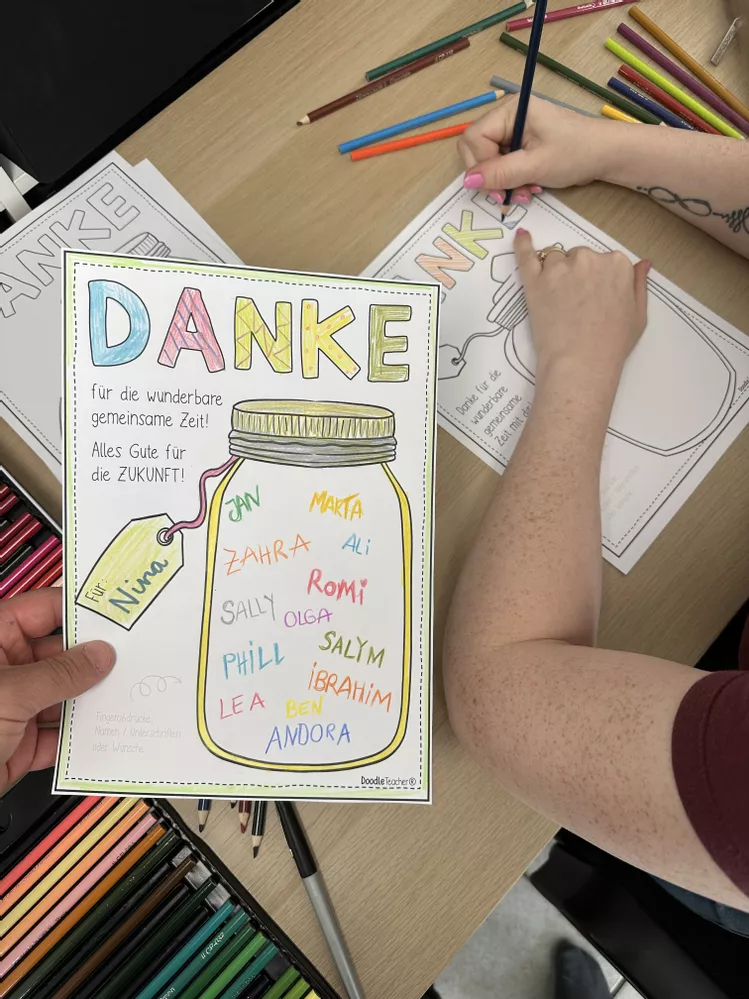 DANKE
für die wunderbare
gemeinsame Zeit!
Alles Gute für
die ZUKUNFT!
Für:
Nina
JAN MARTA
ZAHRA ALi
ROMi
SALLY OLGA
PHILL SALYM
LEA BEN iBRAHiM
ANDORA
Fingerabdrücke,
Namen / Unterschriften
oder Wünsche
DoodleTeacher®
ANKE
ANKE
Danke für die
wunderbare
gemeinsame
Zeit mit